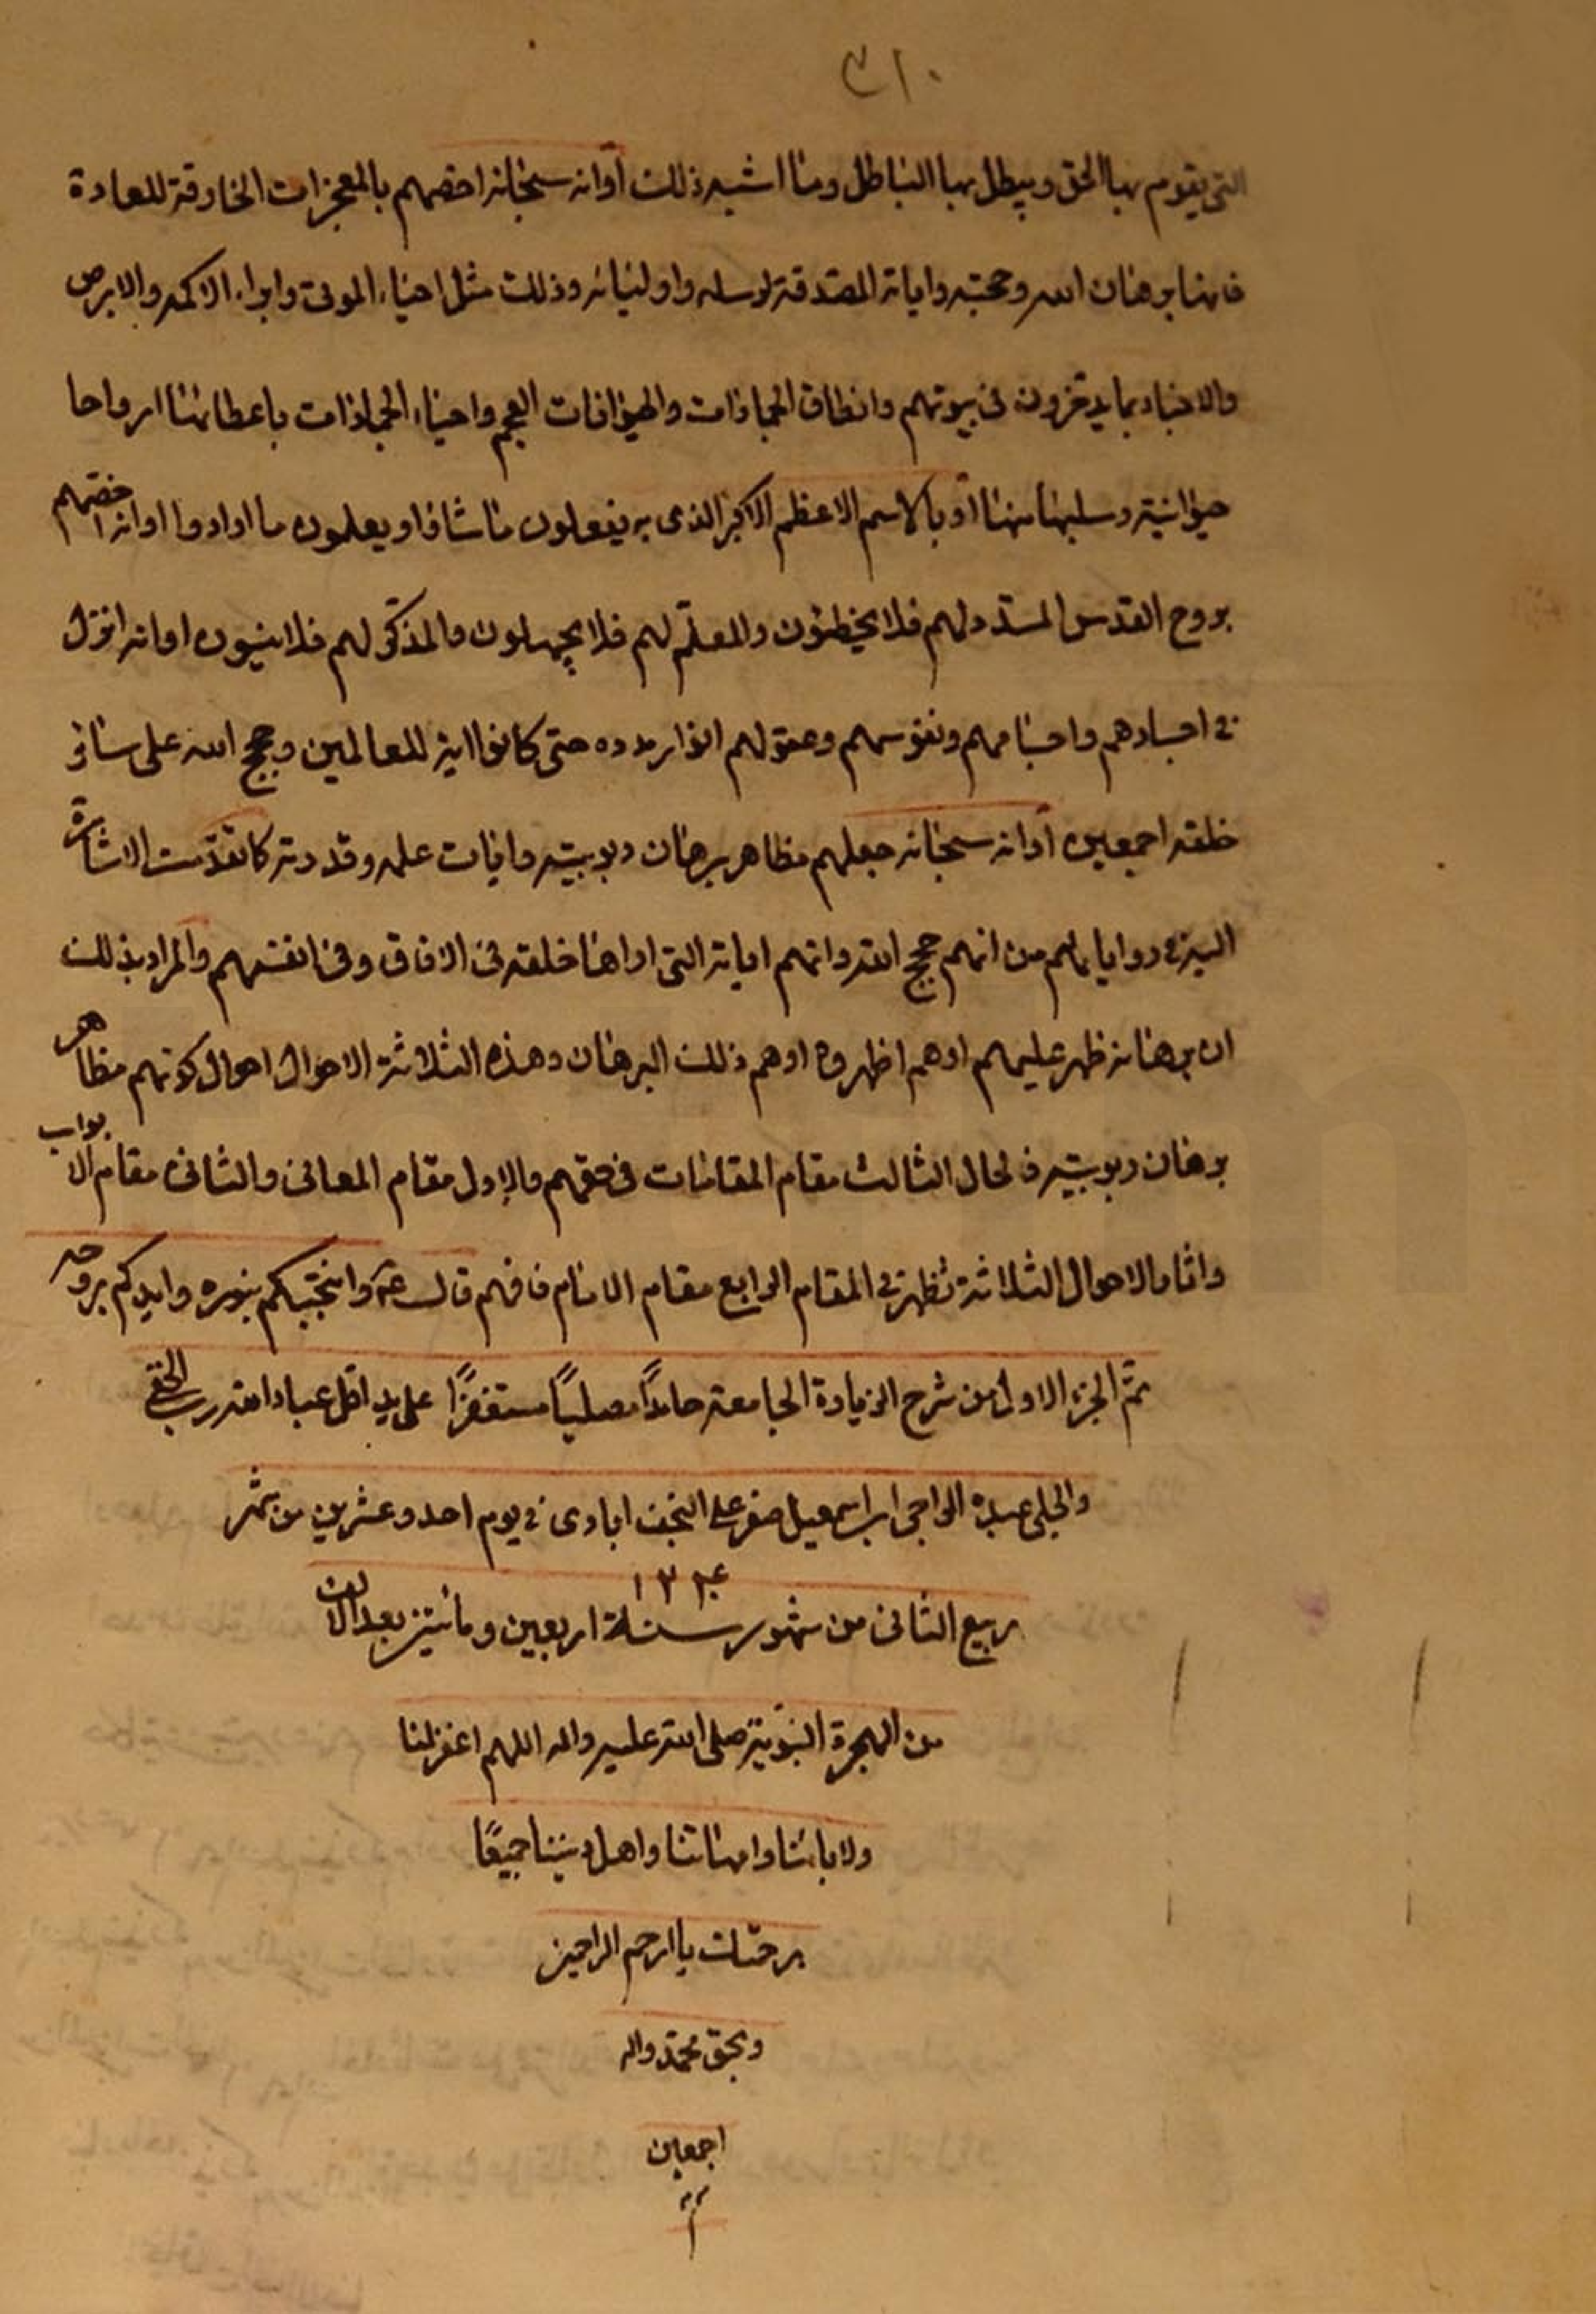 ٣١٠
التى يقوم بها الحق ويبطل بها الباطل وما اشبه ذلك او انه سبحانه اختصهم بالمعجزات الخارقة للعادة
فانها برهان الله وحجته واياته المصدقة لرسله واوليائه وذلك مثل احياء الموتى وابراء الاكمه والابرص
والاخبار بما يدخرون فى بيوتهم وانطاق الجمادات والحيوانات العجم واحياء الجمادات باعطائها ارواحا
حيوانية وسلبها منها او بالاسم الاعظم الاكبر الذى به يفعلون ما شاؤا ويعلمون ما ارادوا او انه اختصهم
بروح القدس المسدد لهم فلا يخطئون والمعلّم لهم فلا يجهلون والمذكّر لهم فلا ينسون او انه انزل
فى اجسادهم واجسامهم ونفوسهم وعقولهم انوار مدده حتى كانوا اية للعالمين وحجج الله على سائر
خلقه اجمعين او انه سبحانه جعلهم مظاهر برهان ربوبيته وايات علمه وقدرته كما تقدّمت الاشارة
اليه فى رواياتهم من انهم حجج الله وانهم اياته التى اراها خلقه فى الافاق وفى انفسهم والمراد بذلك
ان برهانه ظهر عليهم او هم اظهروه او هم ذلك البرهان وهذه الثلاثة الاحوال احوال كونهم مظاهر
برهان ربوبيته فالحال الثالث مقام المقامات فى حقهم والاول مقام المعانى والثانى مقام الابواب
واثار الاحوال الثلاثة تظهر فى المقام الرابع مقام الامام فافهم قال ع وانتجبكم بنوره وايدكم بروحه
تمّ الجزء الاول من شرح الزيادة الجامعة حامدًا مصليًا مستغفرًا على يد اقل عباد الله رب الخفى
والجلى عبده الراجى ابن اسمعيل صفر على النجف ابادى فى يوم احد وعشرين من شهر
١٢٤٠
ربيع الثانى من شهور سنة اربعين ومائتين بعد الالف
من الهجرة النبوّية صلى الله عليه واله اللهم اغفر لنا
ولابائنا وامهاتنا واهل ديننا جميعًا
برحمتك يا ارحم الراحمين
وبحق محمّد واله
اجمعين
م